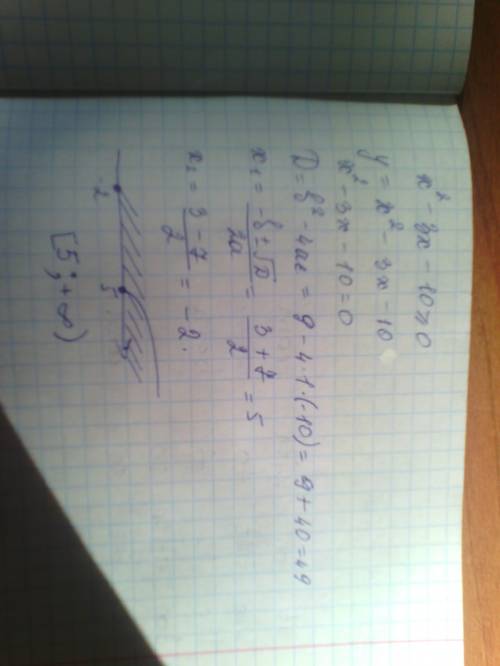 x² - 3x - 10 ≥ 0
y = x² - 3x - 10
x² - 3x - 10 = 0
D = b² - 4ac = 9 - 4·1·(-10) = 9 + 40 = 49
x₁ = (-b ± √D)/2a = (3 + 7)/2 = 5
x₂ = (3 - 7)/2 = -2.
-2 5
[5; +∞)